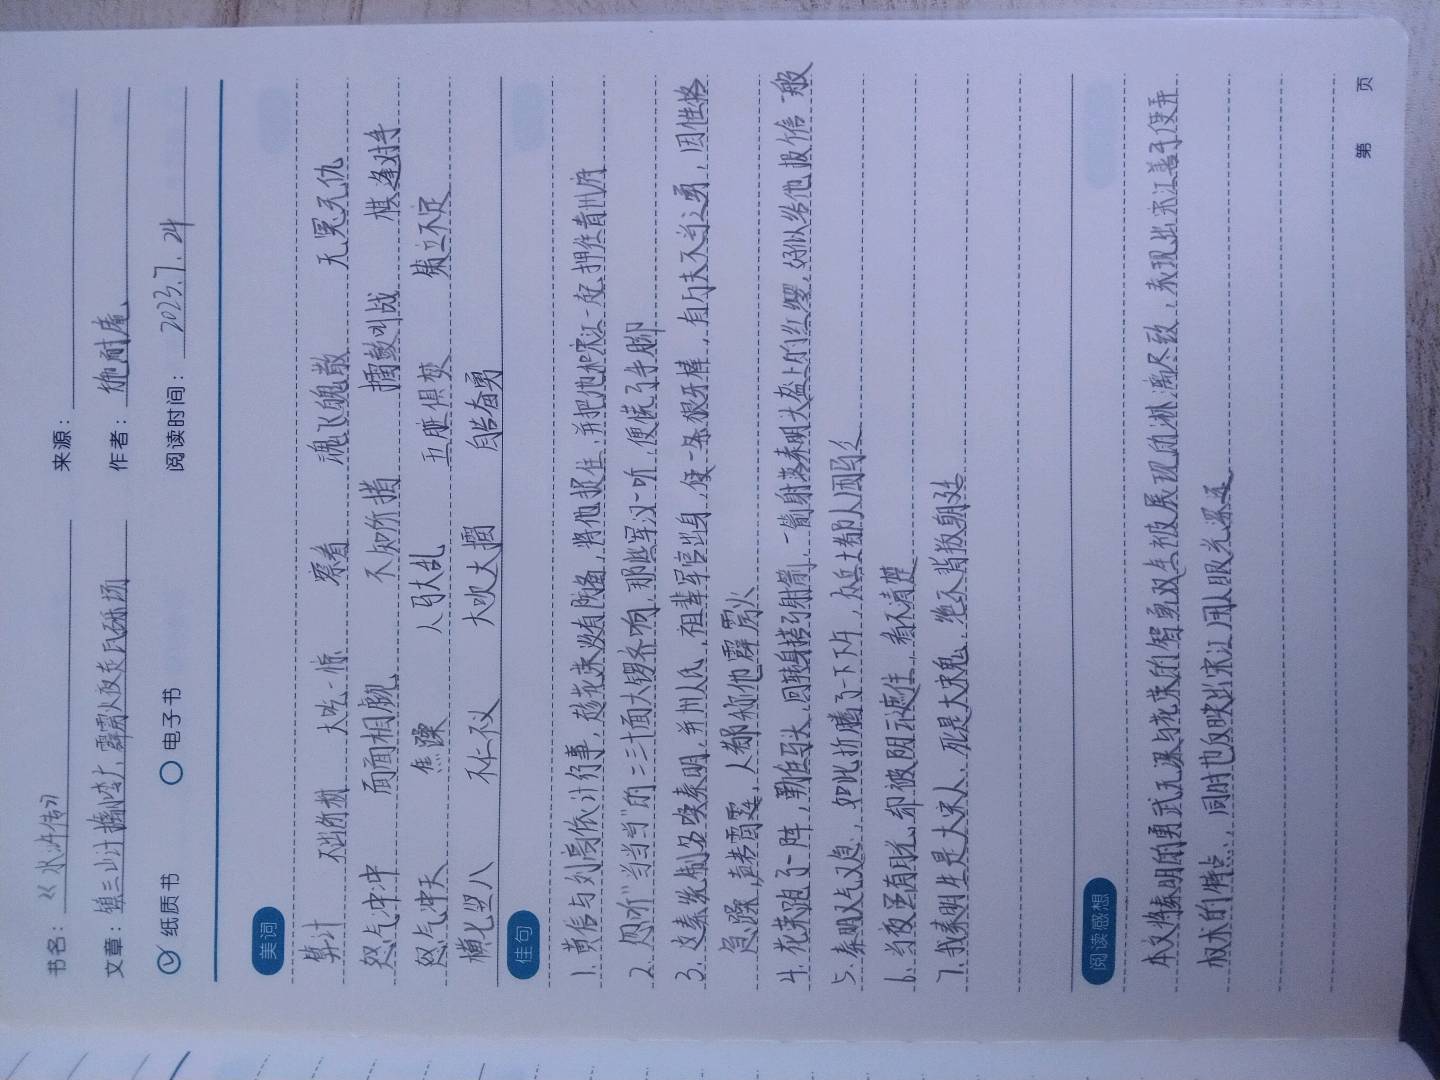 书名：《水浒传》 来源：
文章：镇三山计擒小李广，霹雳火夜走瓦砾场 作者：施耐庵
纸质书 电子书 阅读时间：2023.7.24
美词
算计 不出所料 大吃一惊 察看 魂飞魄散 无冤无仇
怒气冲冲 面面相觑 不知所措 擂鼓叫战 棋逢对手
怒气冲天 焦躁 人马大乱 五脏俱变 犹立不定
横七竖八 不仁不义 大吹大擂 自告奋勇
佳句
1. 黄信与刘高依计行事，趁花荣没有防备，将他捉住，并把他和宋江一起押往青州府
2. 忽听"当当当"的二三十面大锣齐响，那些军汉一听，便慌了手脚
3. 这秦统制名唤秦明，开州人氏，祖辈军官出身，使一条狼牙棒，有万夫不当之勇，因性格
急躁，声若雷霆，人都称他霹雳火
4. 花荣跑了一阵，勒住马头，回转身搭弓射箭，一箭射落秦明头盔上的红缨，好似给他报信一般
5. 秦明又气又急，如此折腾了一下午，众兵士都人困马乏
6. 当夜虽有月光，却被阴云遮住，看不清楚
7. 我秦明生是大宋人，死是大宋鬼，绝不背叛朝廷
阅读感想
本文将秦明的勇武无谋与花荣的智勇双全被展现的淋漓尽致，表现出宋江善于使弄
权术的特点，同时也反映出宋江用人眼光深远
第 页